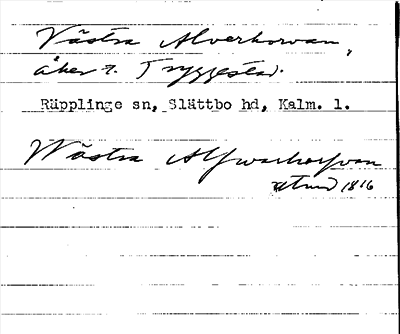 Västra Alverkorvan,
åker t. Tryggestad.
Räpplinge sn, Slättbo hd, Kalm. l.
Westra Alfwarkorfvan
utmd 1816